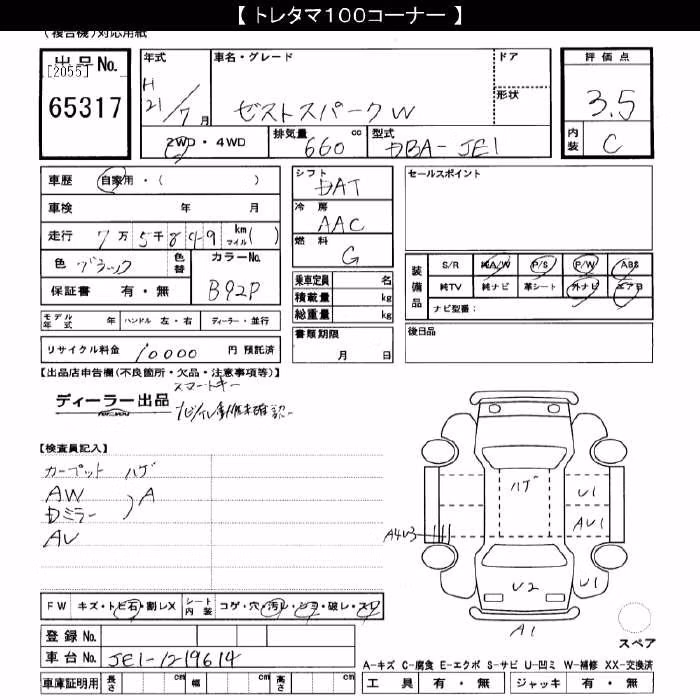 【 トレタマ100コーナー 】
(複合機)対応用紙
出品No.
[2055]
65317
年式
H
21/7月
車名・グレード
ゼストスパークW
ドア
形状
評価点
3.5
内装
C
2WD・4WD
排気量
660 cc
型式
DBA-JE1
車歴 自家用・( )
車検 年 月
走行 7万5千849 km マイル( )
色 ブラック
色替
カラーNo.
B92P
保証書 有・無
シフト
DAT
冷房
AAC
燃料
G
乗車定員 名
積載量 kg
総重量 kg
セールスポイント
装備品
S/R 純A/W P/S P/W ABS
純TV 純ナビ 革シート 外ナビ エアB
ナビ型番:
モデル年式 年 ハンドル 左・右 ディーラー・並行
書類期限
月 日
後日品
リサイクル料金 10000 円 預託済
【出品店申告欄(不良箇所・欠品・注意事項等)】
スマートキー
ディーラー出品
【検査員記入】
カーペット ハゲ
AW
Dミラー
A
AV
ハゲ
U1
AU1
A4U3
U2
U1
A1
FW キズ・トビ石・割レX シート内装 コゲ・穴・汚レ・シミ・破レ・スレ
登録No.
車台No. JE1-1219614
スペア
A-キズ C-腐食 E-エクボ S-サビ U-凹ミ W-補修 XX-交換済
車庫証明用 長さ cm 幅 cm 高さ cm
工具 有・無 ジャッキ 有・無